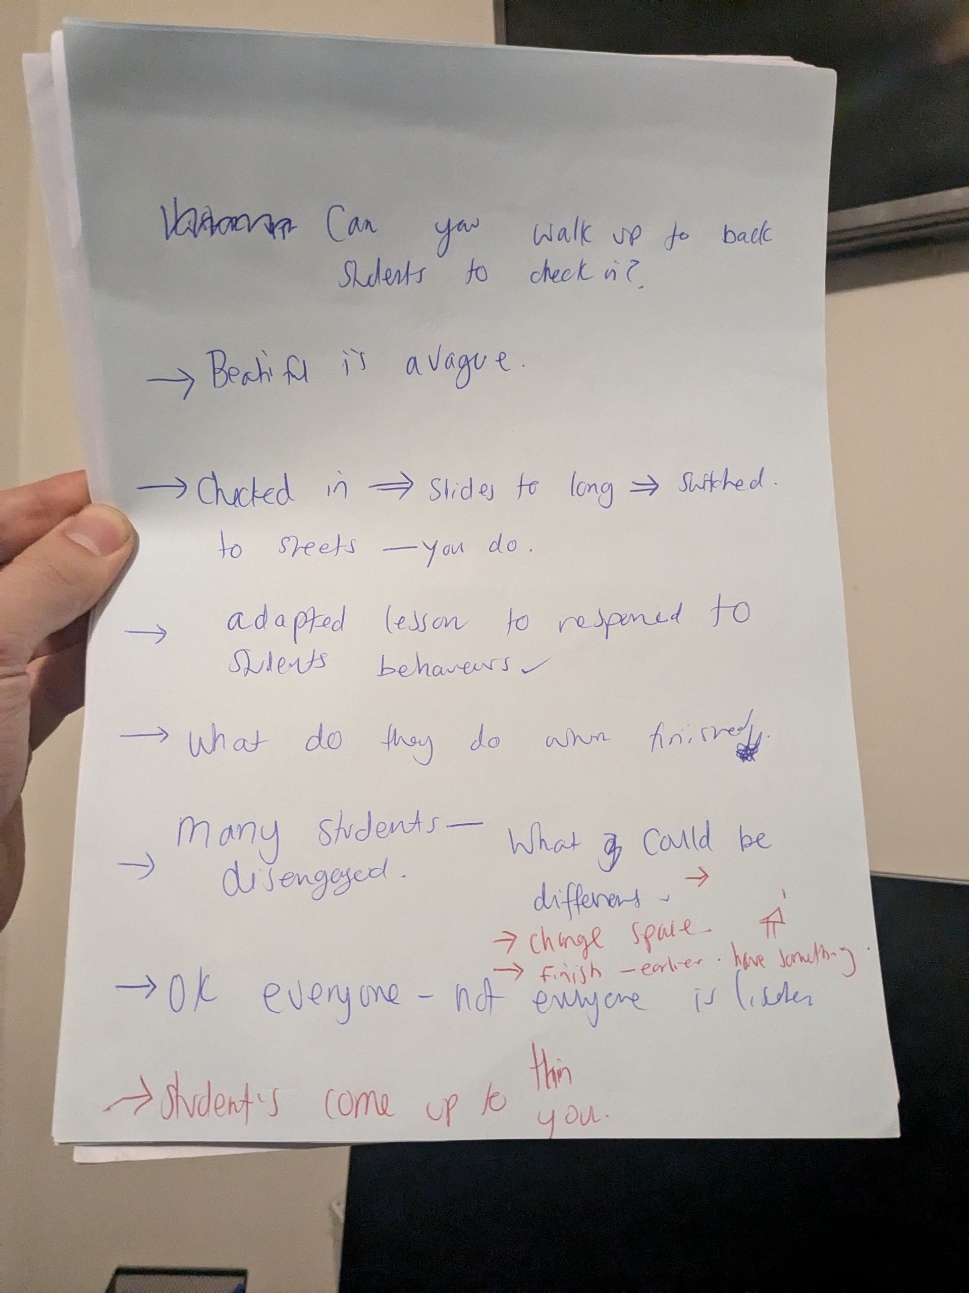 Can you walk up to back
students to check in?
→ Beatiful is a vague.
→ Checked in ⇒ slides to long ⇒ switched.
to sheets — you do.
→ adapted lesson to respened to
students behaveurs ✓
→ what do they do when finished.
Many students —
→ disengaged.
What could be
different →
→ change space.
→ finish - earlier. have something.
→ OK everyone - not everyone is listen
→ student's come up to
you.